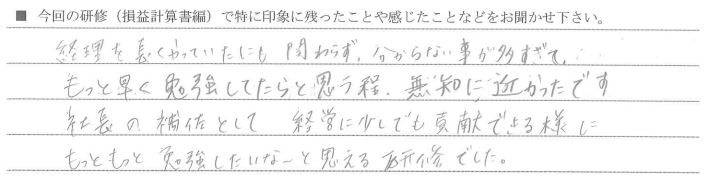 ■ 今回の研修（損益計算書編）で特に印象に残ったことや感じたことなどをお聞かせ下さい。
経理を長くやっていたにも関わらず、分からない事が多すぎて、…
もっと早く勉強してたらと思う程、無知に近かったです
社長の補佐として 経営に少しでも貢献できる様に
もっともっと 勉強したいな〜と思える研修でした。